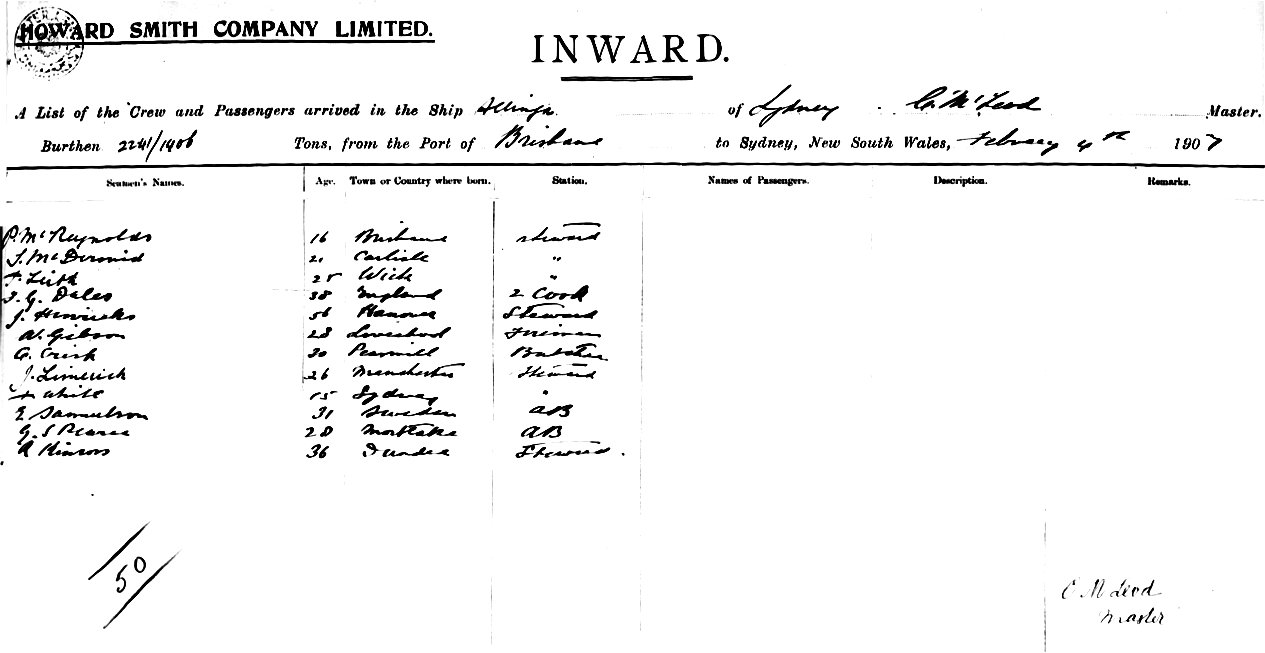 HOWARD SMITH COMPANY LIMITED.
INWARD.
A List of the Crew and Passengers arrived in the Ship Allinga of Sydney C. McLeod Master.
Burthen 2241/1406 Tons, from the Port of Brisbane to Sydney, New South Wales, February 4th 1907
Seamen's Names. Age. Town or Country where born. Station. Names of Passengers. Description. Remarks.
P. McReynolds 16 Brisbane Steward
J. McDermid 21 Carlisle "
F. Leith 25 Wick "
J. G. Dales 38 England 2 Cook
J. Hinricks 56 Hanover Steward
W. Gibson 28 Liverpool Fireman
G. Crisk Butcher
J. Limerick 26 Manchester Steward
White 15 Sydney "
E Samuelson 31 Sweden AB
G. S Pearce 28 Mortlake AB
A Kinross 36 Dundee Steward.
50
C McLeod
Master